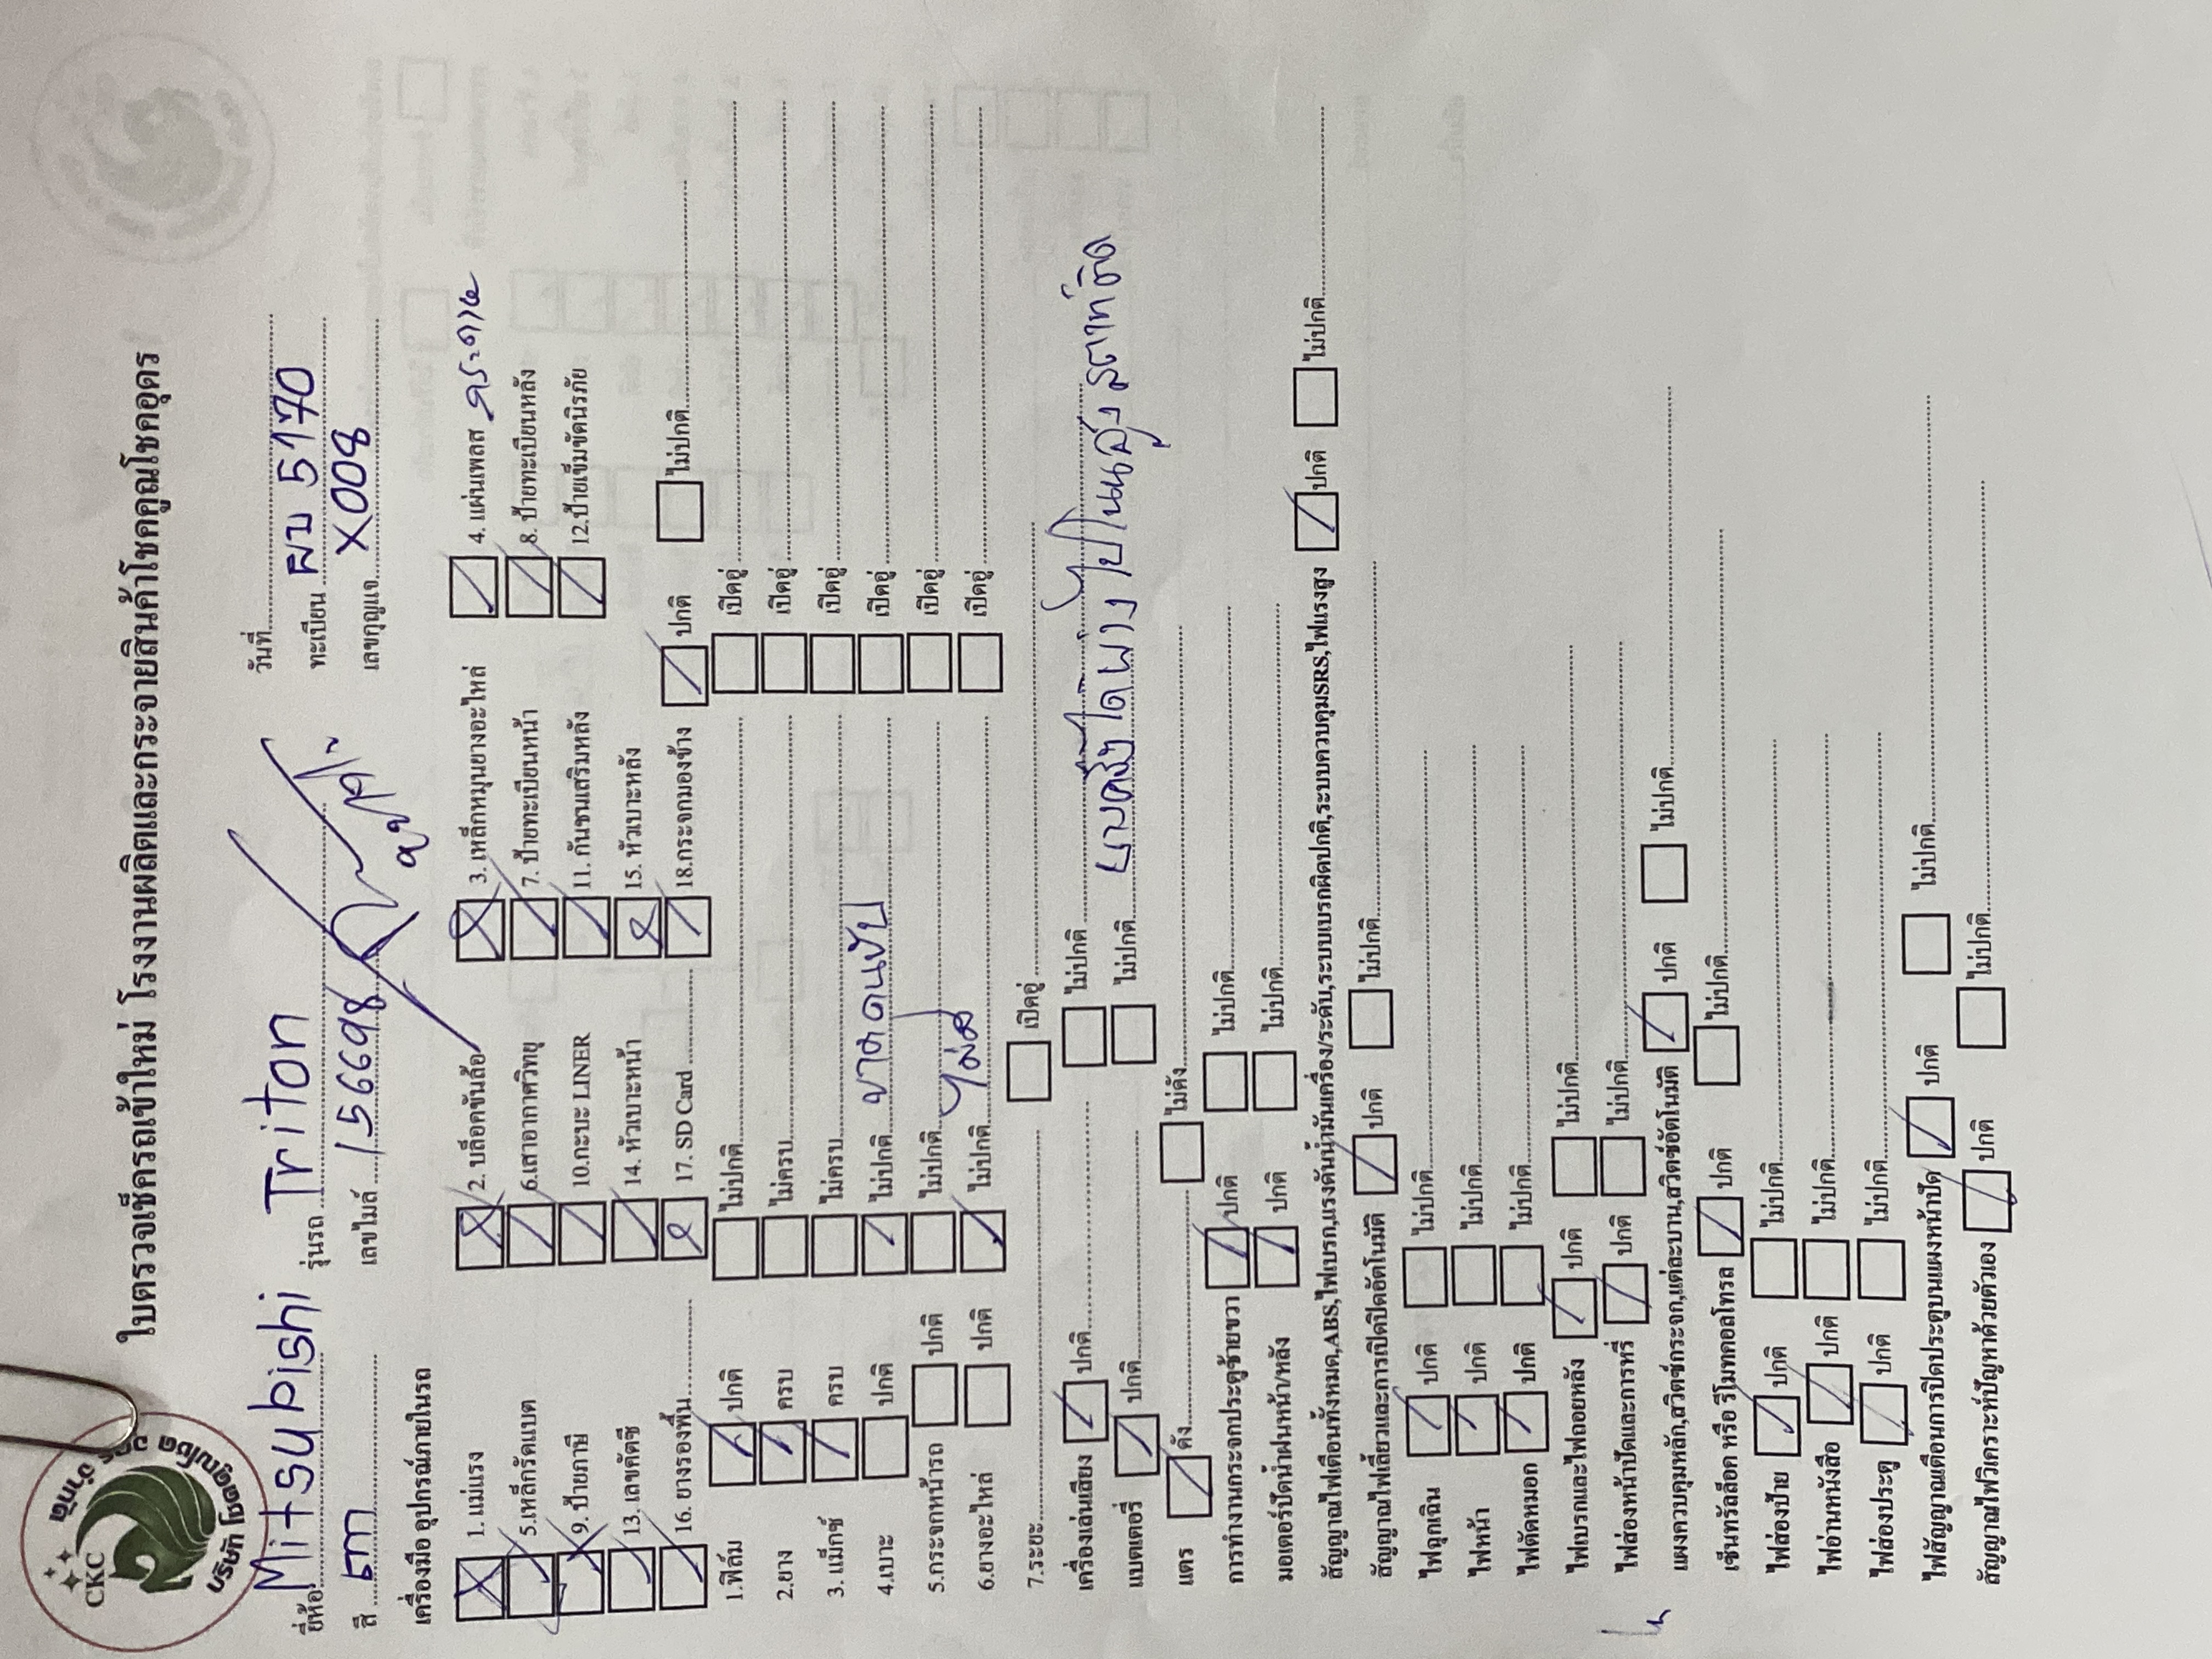 CKC
บริษัท โชคคูณโชค อุดร จำกัด
ใบตรวจเช็ครถเข้าใหม่ โรงงานผลิตและกระจายสินค้าโชคคูณโชคอุดร
วันที่
ยี่ห้อ Mitsubishi รุ่นรถ Triton ทะเบียน ผบ 5170
สี เทา เลขไมล์ 156698 เลขกุญแจ X008
เครื่องมือ อุปกรณ์ภายในรถ
1. แม่แรง 2. บล็อคขันล้อ 3. เหล็กหมุนยางอะไหล่ 4. แผ่นเพลส กระดาษ
5.เหล็กรัดแบต 6.เสาอากาศวิทยุ 7. ป้ายทะเบียนหน้า 8. ป้ายทะเบียนหลัง
9. ป้ายภาษี 10.กะบะ LINER 11. กันชนเสริมหลัง 12.ป้ายเข็มขัดนิรภัย
13. เลขคัตซี 14. หัวเบาะหน้า 15. หัวเบาะหลัง
16. ยางรองพื้น 17. SD Card 18.กระจกมองข้าง ปกติ ไม่ปกติ
1.ฟิล์ม ปกติ ไม่ปกติ เปิดอู่
2.ยาง ครบ ไม่ครบ เปิดอู่
3. แม็กซ์ ครบ ไม่ครบ เปิดอู่
4.เบาะ ปกติ ไม่ปกติ ขาดคนขับ เปิดอู่
5.กระจกหน้ารถ ปกติ ไม่ปกติ เปิดอู่
6.ยางอะไหล่ ปกติ ไม่ปกติ ไม่มี เปิดอู่
7.ระยะ เปิดอู่
เครื่องเล่นเสียง ปกติ ไม่ปกติ
แบตเตอรี่ ปกติ ไม่ปกติ บางครั้ง
แตร ดัง ไม่ดัง
การทำงานกระจกประตูซ้ายขวา ปกติ ไม่ปกติ
มอเตอร์ปัดน้ำฝนหน้า/หลัง ปกติ ไม่ปกติ
สัญญาณไฟเตือนทั้งหมด,ABS,ไฟเบรก,แรงดันน้ำมันเครื่อง/ระดับ,ระบบเบรกผิดปกติ,ระบบควบคุมSRS,ไฟแรงสูง ปกติ ไม่ปกติ
สัญญาณไฟเลี้ยวและการเปิดปิดอัตโนมัติ ปกติ ไม่ปกติ
ไฟฉุกเฉิน ปกติ ไม่ปกติ
ไฟหน้า ปกติ ไม่ปกติ
ไฟตัดหมอก ปกติ ไม่ปกติ
ไฟเบรกและไฟถอยหลัง ปกติ ไม่ปกติ
ไฟส่องหน้าปัดและการหรี่ ปกติ ไม่ปกติ
แผงควบคุมหลัก,สวิตช์กระจก,แต่ละบาน,สวิตช์อัตโนมัติ ปกติ ไม่ปกติ
เซ็นทรัลล็อค หรือ รีโมทคอลโทรล ปกติ ไม่ปกติ
ไฟส่องป้าย ปกติ ไม่ปกติ
ไฟอ่านหนังสือ ปกติ ไม่ปกติ
ไฟส่องประตู ปกติ ไม่ปกติ
ไฟสัญญาณเตือนการปิดประตูบนแผงหน้าปัด ปกติ ไม่ปกติ
สัญญาณไฟวิเคราะห์ปัญหาด้วยตัวเอง ปกติ ไม่ปกติ